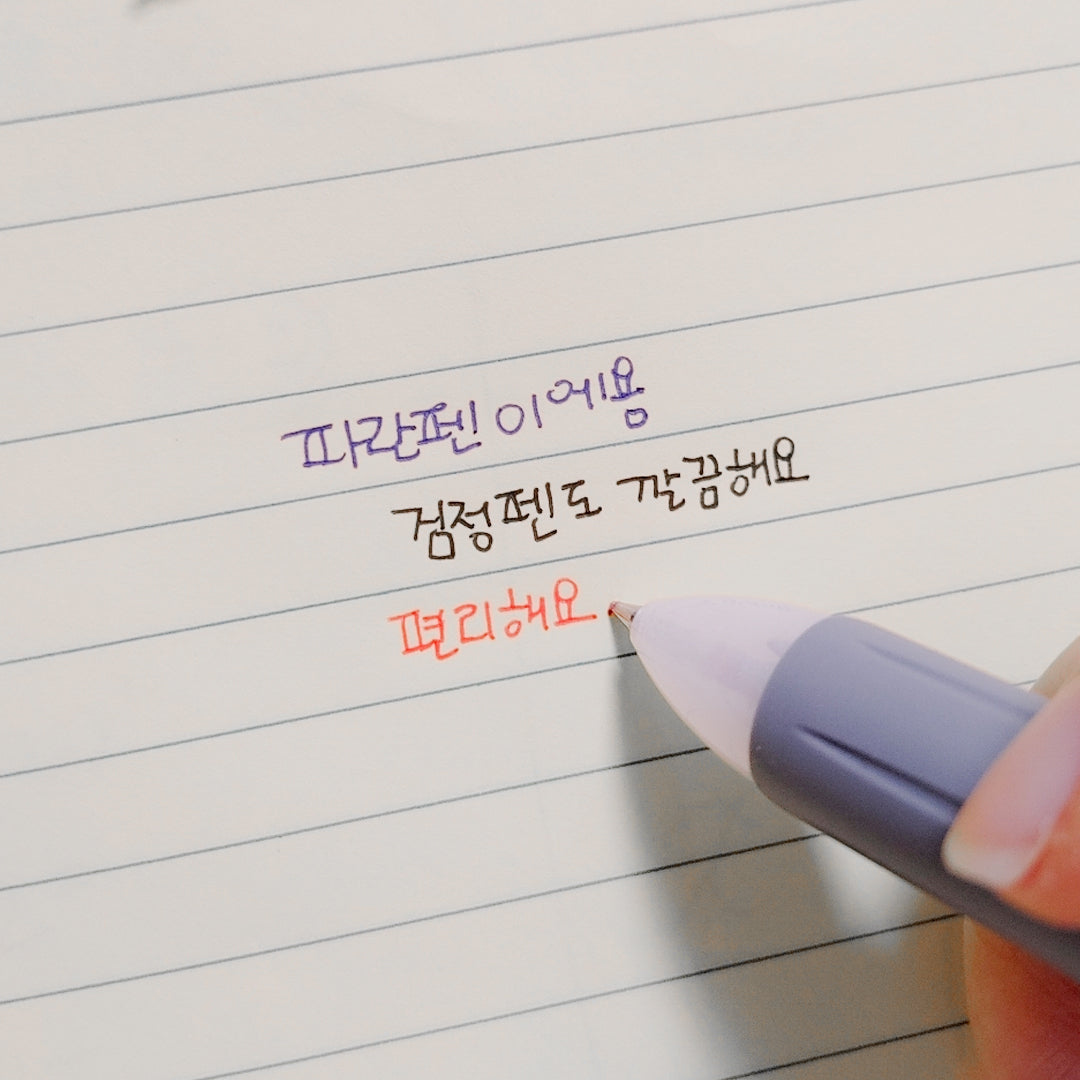 파란펜이에용
검정펜도 깔끔해요
편리해요